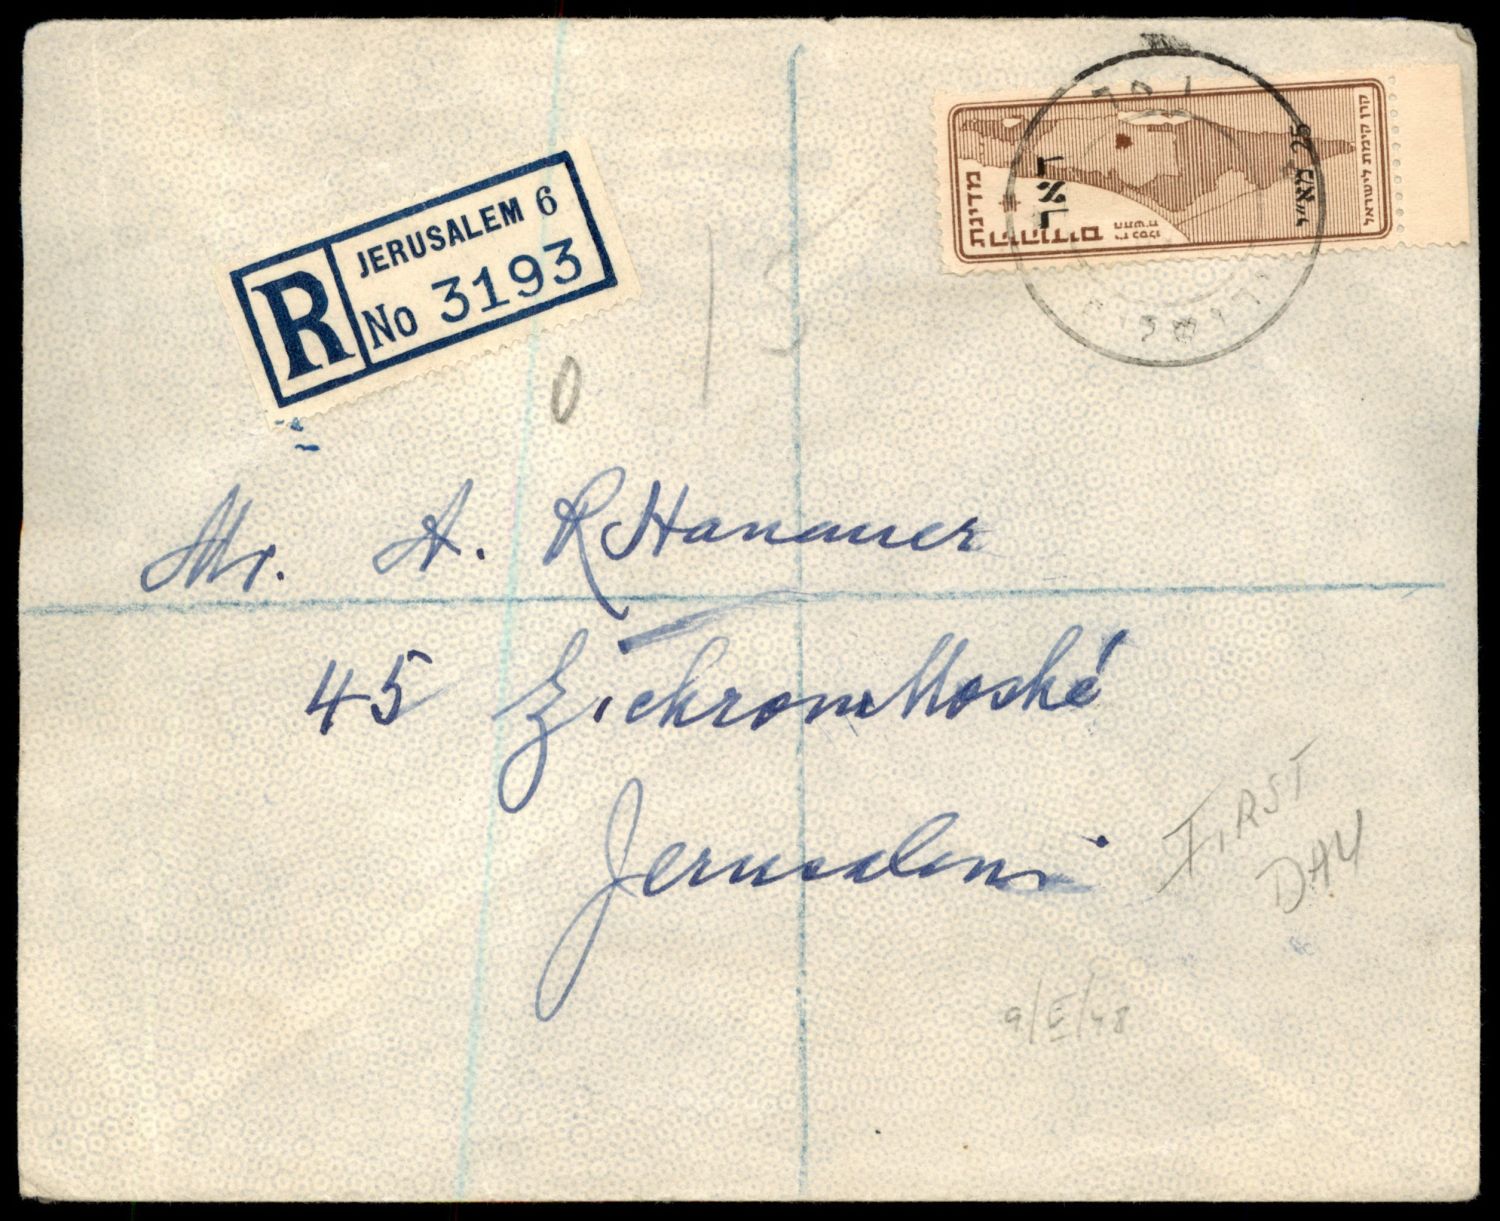 JERUSALEM 6
R No 3193
דאר
25 מא"י
מדינת
היהודים
קרן קימת לישראל
ירושלים
0
Mr. A. R Hanauer
45 Zichron Moshé
Jerusalem
FIRST
DAY
9/E/48